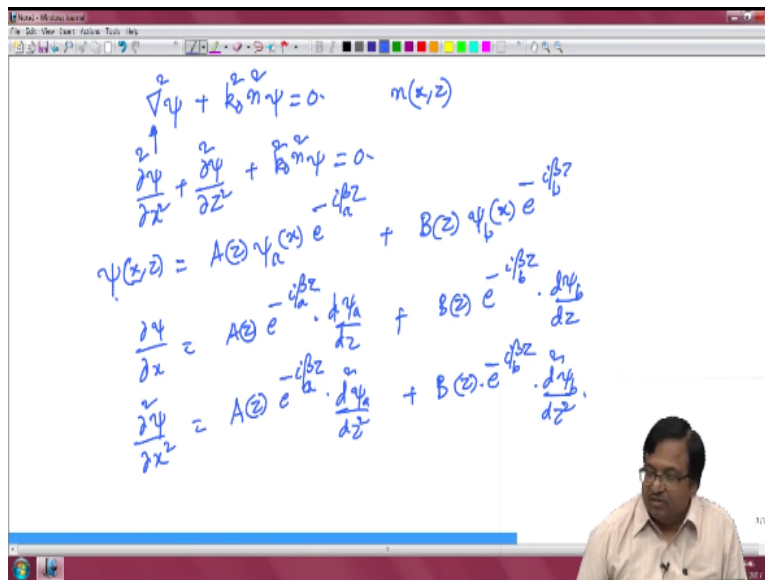 Note1 - Windows Journal
File Edit View Insert Actions Tools Help
∇²ψ + k₀²n²ψ = 0. n(x,z)
∂²ψ/∂x² + ∂²ψ/∂z² + k₀²n²ψ = 0.
ψ(x,z) = A(z) ψₐ(x) e^{-iβₐz} + B(z) ψ_b(x) e^{-iβ_bz}
∂ψ/∂x = A(z) e^{-iβₐz} · dψₐ/dz + B(z) e^{-iβ_bz} · dψ_b/dz
∂²ψ/∂x² = A(z) e^{-iβₐz} · d²ψₐ/dz² + B(z) · e^{-iβ_bz} · d²ψ_b/dz².